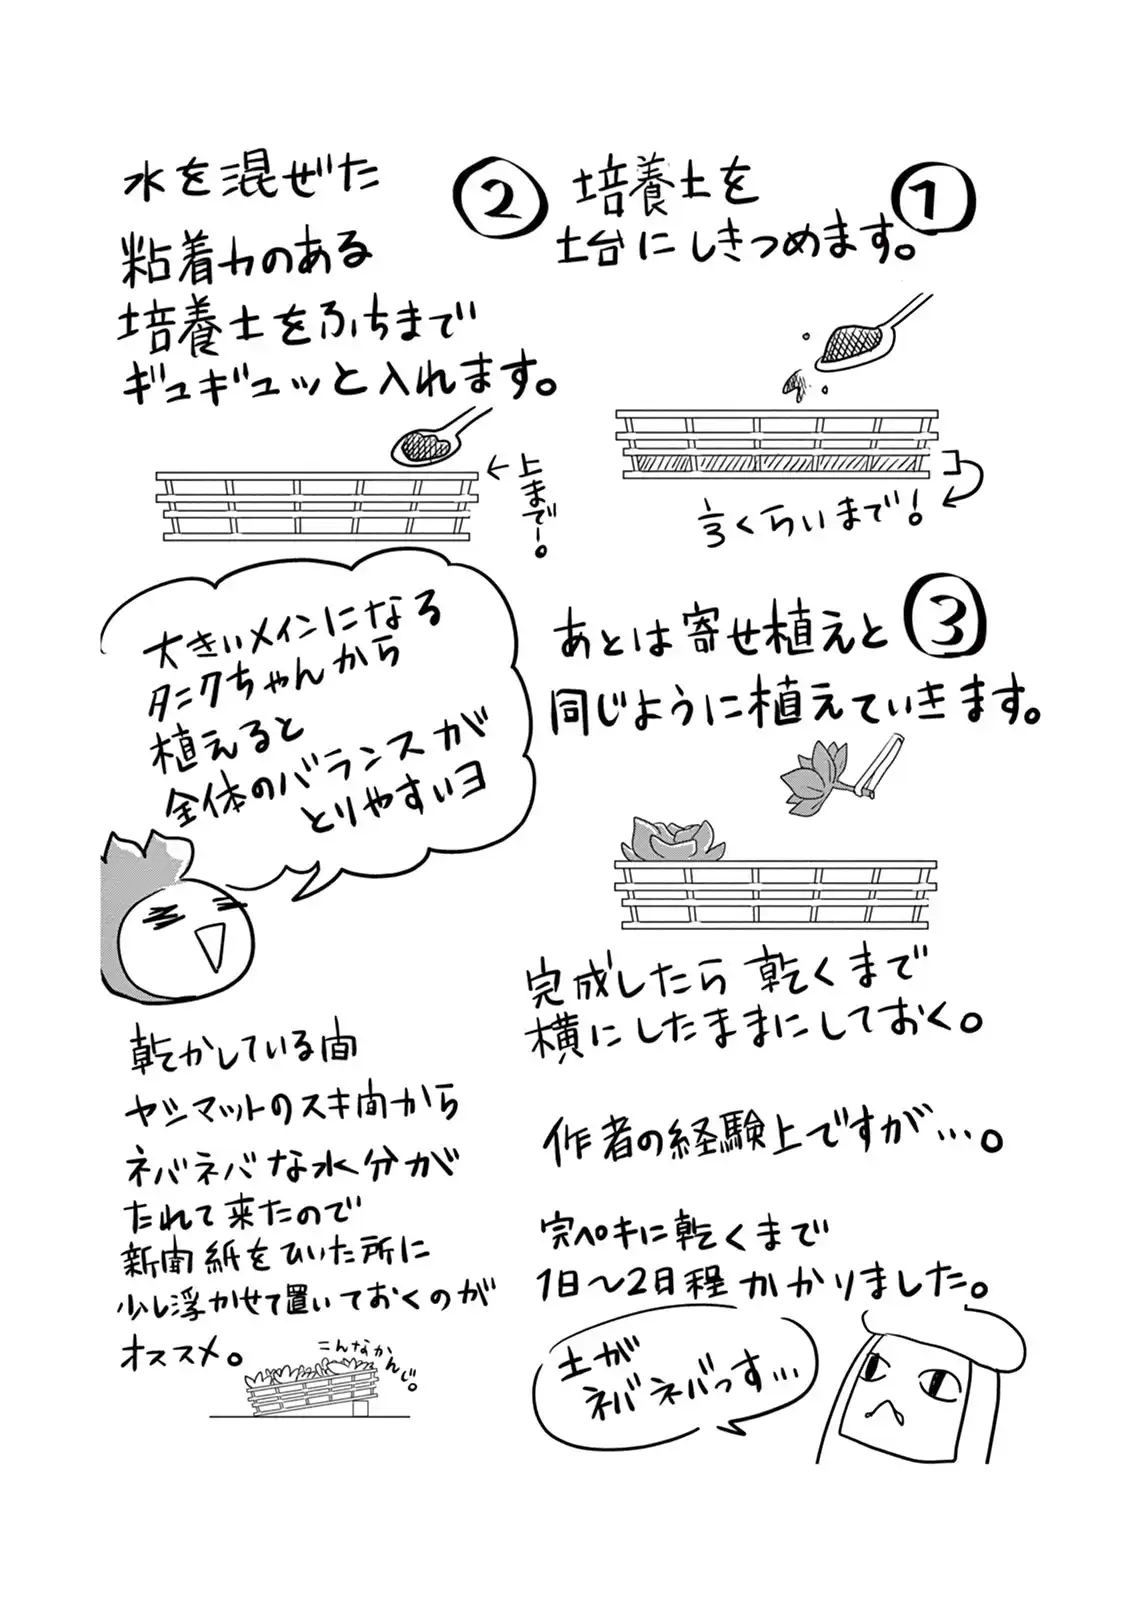 ①
培養土を
土台にしきつめます。
⅓くらいまで!
②
水を混ぜた
粘着力のある
培養土をふちまで
ギュギュッと入れます。
←上まで!。
③
あとは寄せ植えと
同じように植えていきます。
大きいメインになる
タニクちゃんから
植えると
全体のバランスが
とりやすいヨ
完成したら乾くまで
横にしたままにしておく。
作者の経験上ですが…。
完ペキに乾くまで
1日〜2日程かかりました。
土が
ネバネバっす…
乾かしている間
ヤシマットのスキ間から
ネバネバな水分が
たれて来たので
新聞紙をひいた所に
少し浮かせて置いておくのが
オススメ。
こんなかんじ。